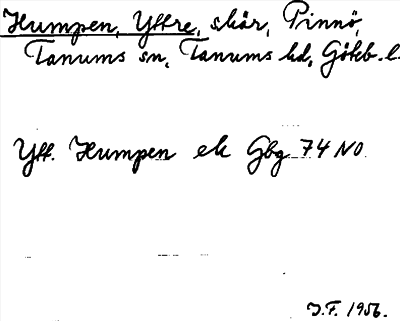 Humpen, Yttre, skär, Pinnö,
Tanums sn, Tanums hd, Göteb. l.
Ytt. Humpen ek Gbg 74 NO
J.F. 1956.